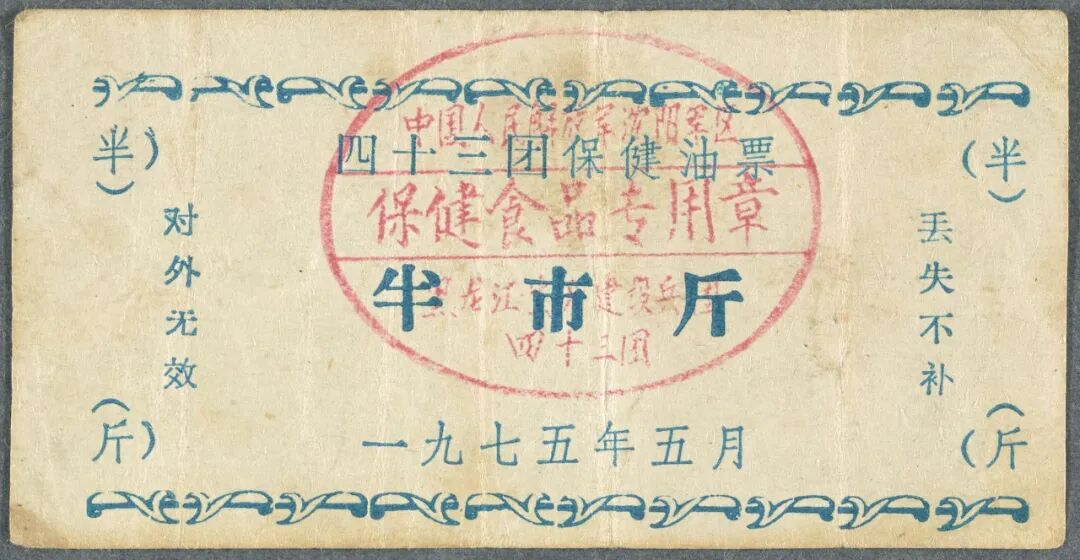 四十三团保健油票
半市斤
一九七五年五月
(半)
(半)
对外无效
丢失不补
(斤)
(斤)
中国人民解放军沈阳军区
保健食品专用章
黑龙江生产建设兵团
四十三团